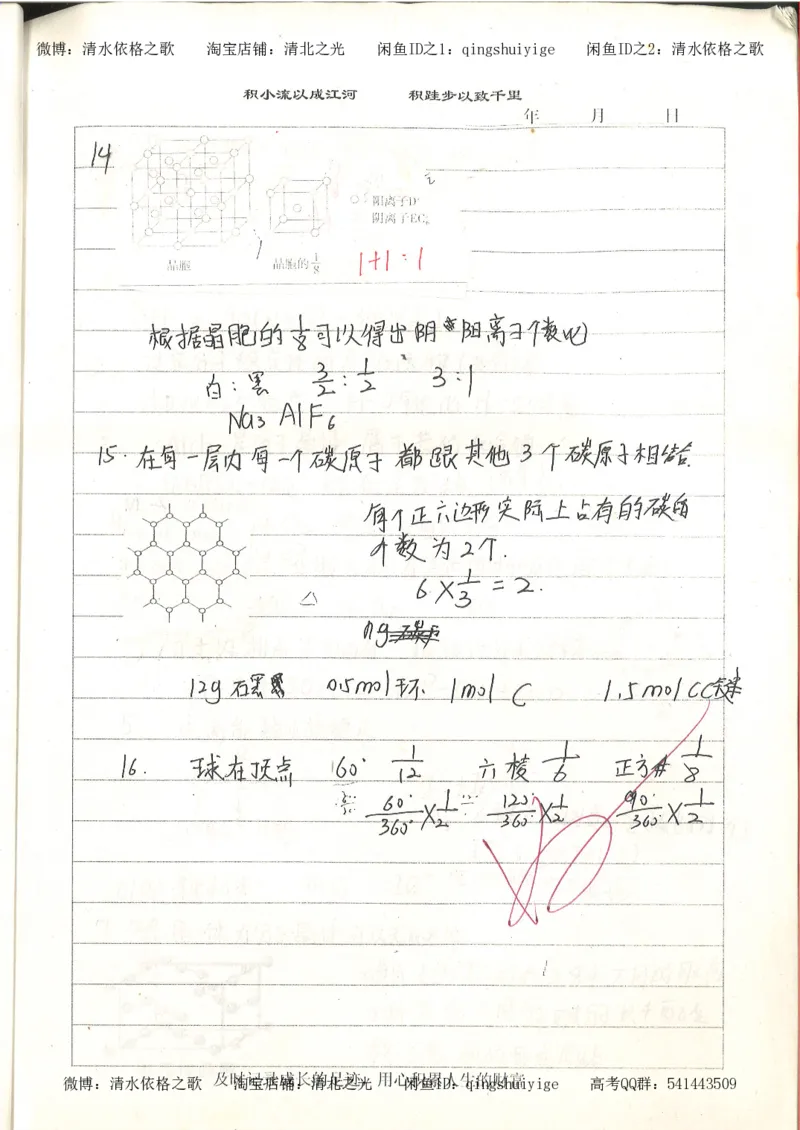 微博：清水依格之歌 淘宝店铺：清北之光 闲鱼ID之1：qingshuiyige 闲鱼ID之2：清水依格之歌
积小流以成江河 积跬步以致千里
年 月 日
14
阳离子D
阴离子EC
晶胞 晶胞的1/8 1+1=1
根据晶胞的1/8可以得出阴 阳离子个数比
白:黑 3/2:1/2 3:1
Na3AlF6
15.在每一层内每一个碳原子都跟其他3个碳原子相结合.
每个正六边形实际上占有的碳
个数为2个.
6×1/3=2.
12g石墨 0.5mol环 1mol C 1.5mol CC键
16. 球在顶点 60° 1/12 六棱 1/6 正方 1/8
60°/360°×1/2 120°/360°×1/2 90°/360°×1/2
及时记录成长的足迹 用心积累人生的财富
微博：清水依格之歌 淘宝店铺：清北之光 闲鱼ID：qingshuiyige 高考QQ群：541443509